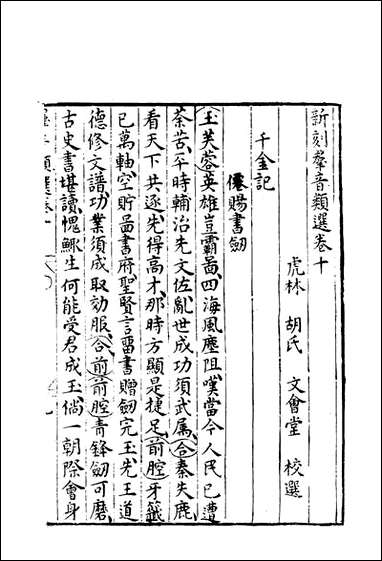 新刻羣音類選卷十
虎林 胡氏 文會堂 校選
千金記
僊賜書劒
玉芙蓉英雄豈霸啚四海風塵阻嘆當今人民已遭
荼苦平時輔治先文佐亂世成功須武屬合秦失鹿
看天下共逐先得高才那時方顯是捷足前腔牙籤
已萬軸空貯啚書府聖賢言畱書贈劒完玉先王道
德修文譜功業須成取効服合前前腔青鋒劒可磨
古史書堪讀愧鯫生何能受君成玉倘一朝際會身